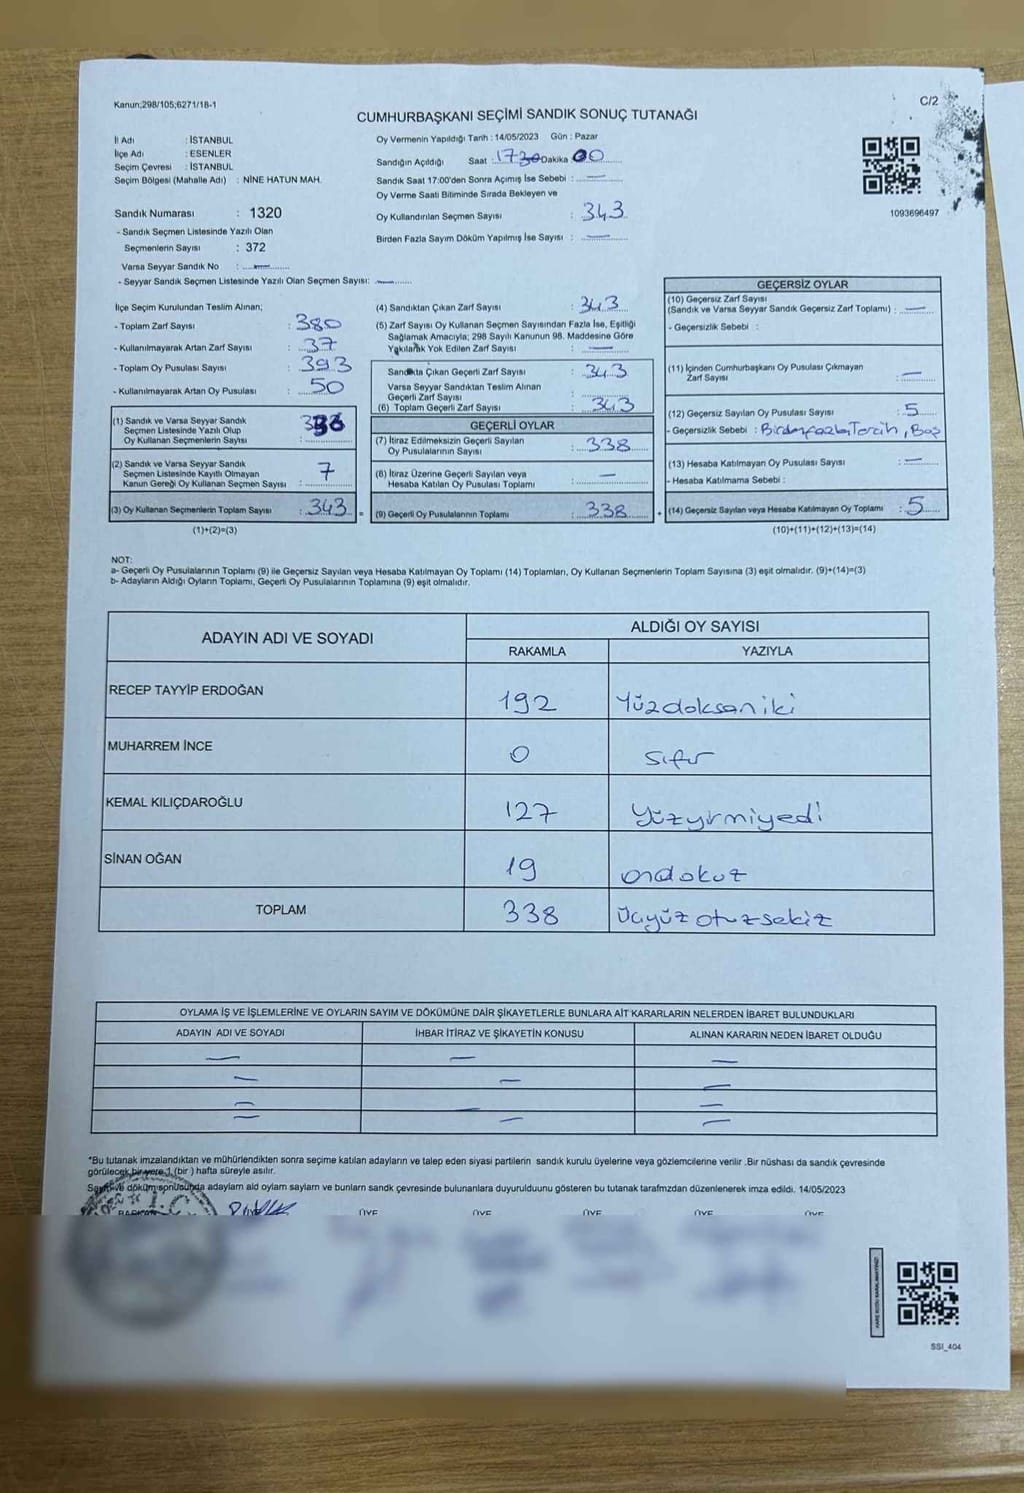 Kanun;298/105;6271/18-1
C/2
CUMHURBAŞKANI SEÇİMİ SANDIK SONUÇ TUTANAĞI
İl Adı : İSTANBUL
İlçe Adı : ESENLER
Seçim Çevresi : İSTANBUL
Seçim Bölgesi (Mahalle Adı) : NİNE HATUN MAH.
Sandık Numarası : 1320
- Sandık Seçmen Listesinde Yazılı Olan
Seçmenlerin Sayısı : 372
Varsa Seyyar Sandık No : —
- Seyyar Sandık Seçmen Listesinde Yazılı Olan Seçmen Sayısı: —
Oy Vermenin Yapıldığı Tarih : 14/05/2023 Gün : Pazar
Sandığın Açıldığı Saat : 17 Dakika 00
Sandık Saat 17:00'den Sonra Açımış İse Sebebi : —
Oy Verme Saati Bitiminde Sırada Bekleyen ve
Oy Kullandırılan Seçmen Sayısı : 343
Birden Fazla Sayım Döküm Yapılmış İse Sayısı : —
1093696497
İlçe Seçim Kurulundan Teslim Alınan;
- Toplam Zarf Sayısı : 380
- Kullanılmayarak Artan Zarf Sayısı : 37
- Toplam Oy Pusulası Sayısı : 393
- Kullanılmayarak Artan Oy Pusulası : 50
(1) Sandık ve Varsa Seyyar Sandık
Seçmen Listesinde Yazılı Olup
Oy Kullanan Seçmenlerin Sayısı : 336
(2) Sandık ve Varsa Seyyar Sandık
Seçmen Listesinde Kayıtlı Olmayan
Kanun Gereği Oy Kullanan Seçmen Sayısı : 7
(3) Oy Kullanan Seçmenlerin Toplam Sayısı : 343 =
(1)+(2)=(3)
(4) Sandıktan Çıkan Zarf Sayısı : 343
(5) Zarf Sayısı Oy Kullanan Seçmen Sayısından Fazla İse, Eşitliği
Sağlamak Amacıyla; 298 Sayılı Kanunun 98. Maddesine Göre
Yakılarak Yok Edilen Zarf Sayısı : —
Sandıkta Çıkan Geçerli Zarf Sayısı : 343
Varsa Seyyar Sandıktan Teslim Alınan
Geçerli Zarf Sayısı :
(6) Toplam Geçerli Zarf Sayısı : 343
GEÇERLİ OYLAR
(7) İtiraz Edilmeksizin Geçerli Sayılan
Oy Pusulalarının Sayısı : 338
(8) İtiraz Üzerine Geçerli Sayılan veya
Hesaba Katılan Oy Pusulası Toplamı : —
(9) Geçerli Oy Pusulalarının Toplamı : 338 +
GEÇERSİZ OYLAR
(10) Geçersiz Zarf Sayısı
(Sandık ve Varsa Seyyar Sandık Geçersiz Zarf Toplamı) : —
- Geçersizlik Sebebi :
(11) İçinden Cumhurbaşkanı Oy Pusulası Çıkmayan
Zarf Sayısı : —
(12) Geçersiz Sayılan Oy Pusulası Sayısı : 5
- Geçersizlik Sebebi : Birden fazla Tercih, Boş
(13) Hesaba Katılmayan Oy Pusulası Sayısı : —
- Hesaba Katılmama Sebebi :
(14) Geçersiz Sayılan veya Hesaba Katılmayan Oy Toplamı : 5
(10)+(11)+(12)+(13)=(14)
NOT:
a- Geçerli Oy Pusulasının Toplamı (9) ile Geçersiz Sayılan veya Hesaba Katılmayan Oy Toplamı (14) Toplamları, Oy Kullanan Seçmenlerin Toplam Sayısına (3) eşit olmalıdır. (9)+(14)=(3)
b- Adayların Aldığı Oyların Toplamı, Geçerli Oy Pusulalarının Toplamına (9) eşit olmalıdır.
ADAYIN ADI VE SOYADI ALDIĞI OY SAYISI
RAKAMLA YAZIYLA
RECEP TAYYİP ERDOĞAN 192 Yüzdoksaniki
MUHARREM İNCE 0 sıfır
KEMAL KILIÇDAROĞLU 127 Yüzyirmiyedi
SİNAN OĞAN 19 ondokuz
TOPLAM 338 Üçyüzotuzsekiz
OYLAMA İŞ VE İŞLEMLERİNE VE OYLARIN SAYIM VE DÖKÜMÜNE DAİR ŞİKAYETLERLE BUNLARA AİT KARARLARIN NELERDEN İBARET BULUNDUKLARI
ADAYIN ADI VE SOYADI İHBAR İTİRAZ VE ŞİKAYETİN KONUSU ALINAN KARARIN NEDEN İBARET OLDUĞU
*Bu tutanak imzalandıktan ve mühürlendikten sonra seçime katılan adayların ve talep eden siyasi partilerin sandık kurulu üyelerine veya gözlemcilerine verilir .Bir nüshası da sandık çevresinde
görülecek bir yere 1 (bir ) hafta süreyle asılır.
Sayım ve döküm sonucunda adayların ald oyların sayların ve bunların sandk çevresinde bulunanlara duyurulduunu gösteren bu tutanak tarafmzdan düzenlenerek imza edildi. 14/05/2023
BAŞKAN ÜYE ÜYE ÜYE ÜYE
SSI_404